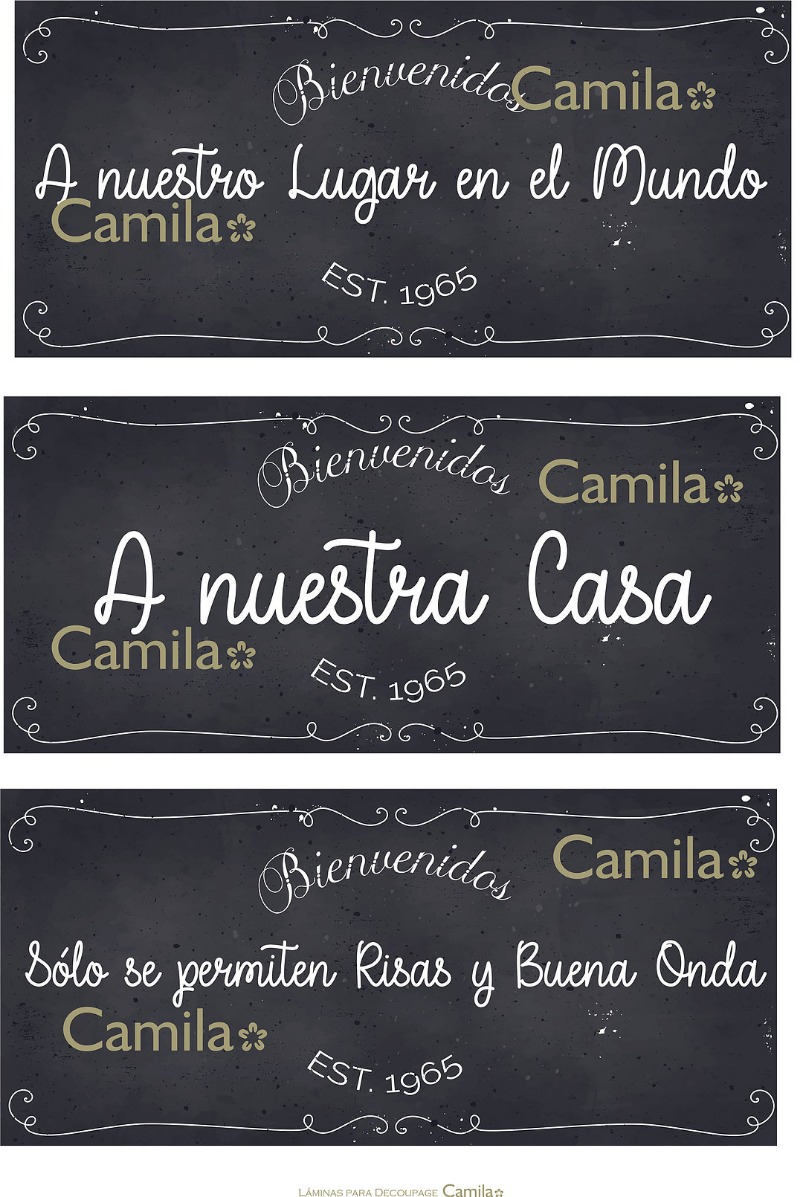 Bienvenidos
Camila
A nuestro Lugar en el Mundo
Camila
EST. 1965
Bienvenidos
Camila
A nuestra Casa
Camila
EST. 1965
Bienvenidos
Camila
Sólo se permiten Risas y Buena Onda
Camila
EST. 1965
LÁMINAS PARA DECOUPAGE Camila